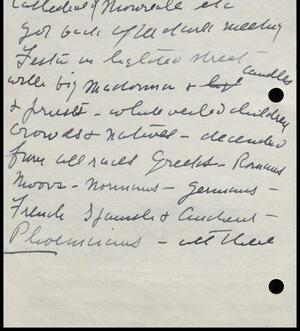 Cathedral of Monreale etc
got back after dark meeting
Festa in lighted street
with big Madonna & candles
& priests - white veiled children
crowds & natives - decended
from all races Greeks - Romans
Moors - Normans - Germans -
French Spanish & Ancient -
Phoenicians - all there